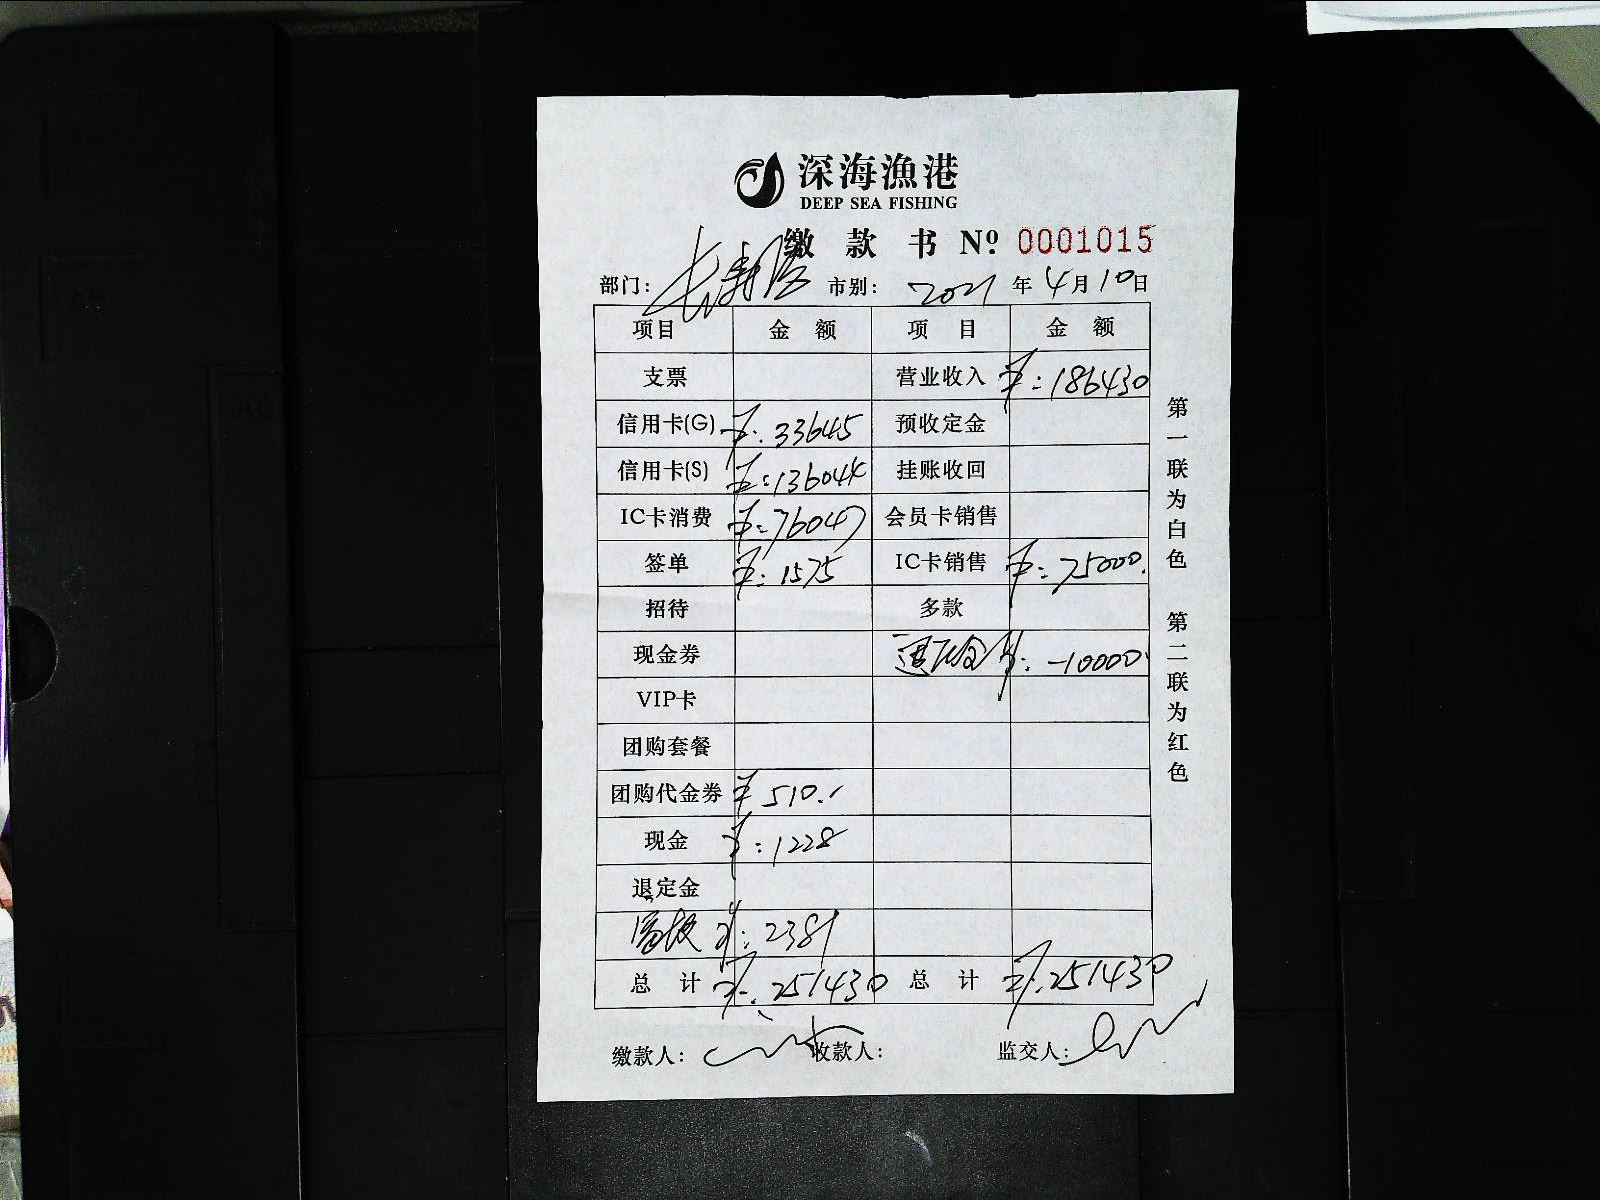 深海漁港
DEEP SEA FISHING
缴款书 Nº 0001015
部门: 市别: 2021年4月10日
项目 金额 项目 金额
支票 营业收入 ¥:186430
信用卡(G) ¥:33645 预收定金
信用卡(S) ¥:136044 挂账收回
IC卡消费 ¥:76047 会员卡销售
签单 ¥:1575 IC卡销售 ¥:75000.
招待 多款
现金券 退定金 ¥:-10000
VIP卡
团购套餐
团购代金券 ¥510.
现金 ¥:1228
退定金
¥:2381
总计 ¥:251430 总计 ¥:251430
缴款人: 收款人: 监交人:
第一联为白色 第二联为红色